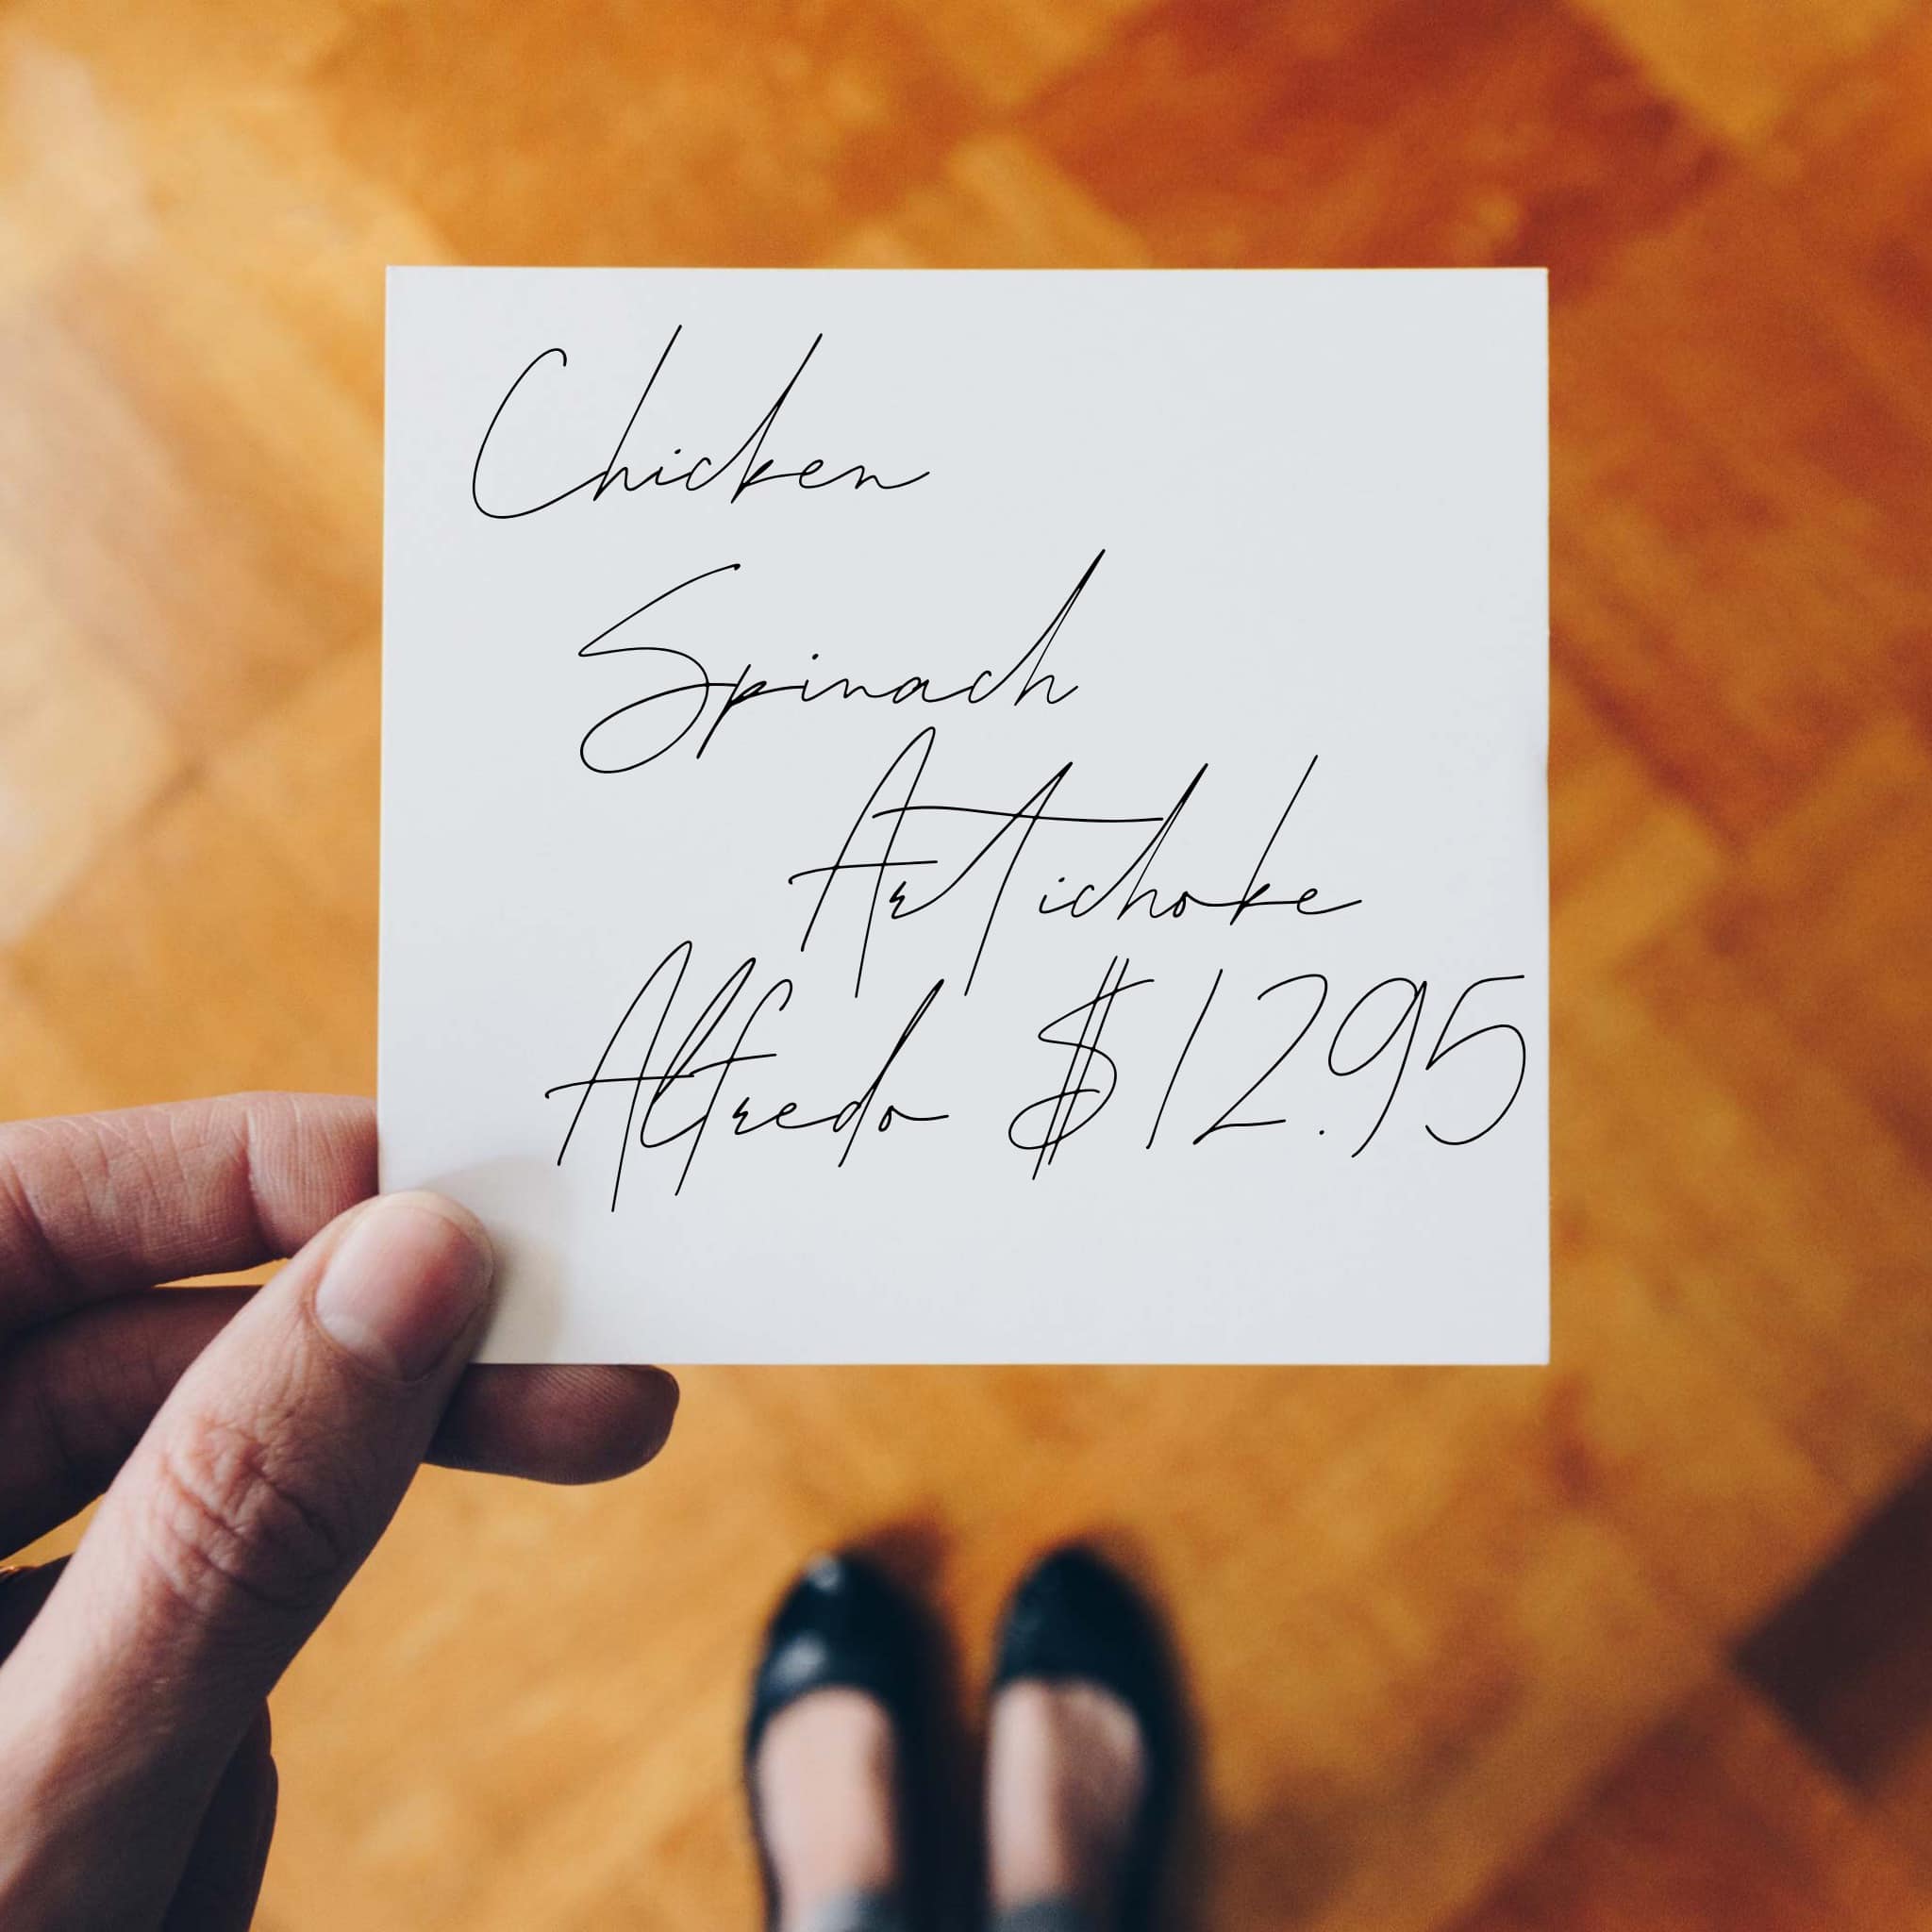 Chicken
Spinach
Artichoke
Alfredo $12.95